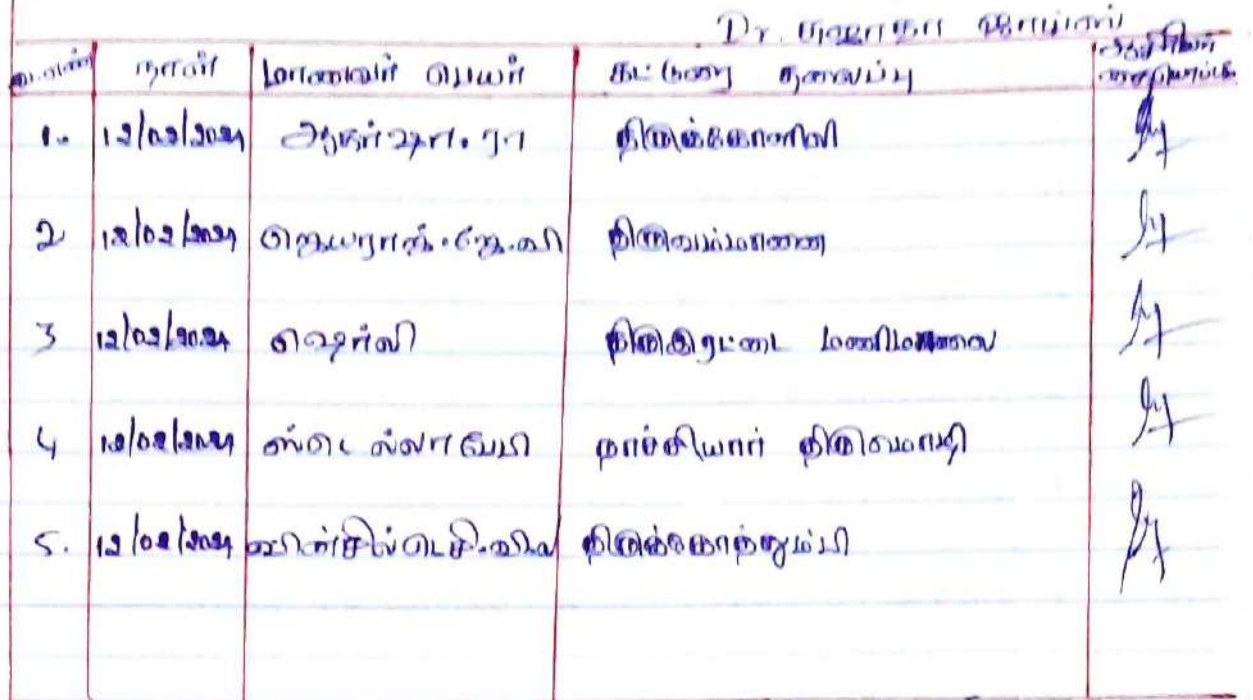 Dr.
வ.எண் நாள் மாணவர் பெயர் கட்டுரை தலைப்பு ஆசிரியர்
கையொப்பம்
1. 12/02/2021 ஆதர்ஷா. ரா திருக்கோளிலி
2 12/02/2021 ஜெயராஜ். ஜே. வி திருவம்மானை
3 12/02/2021 ஷெர்லி திருஇரட்டை மணிமாலை
4 12/02/2021 ஸ்டெல்லா பேபி நாச்சியார் திருமொழி
5. 12/02/2021 திருக்கோத்தும்பி